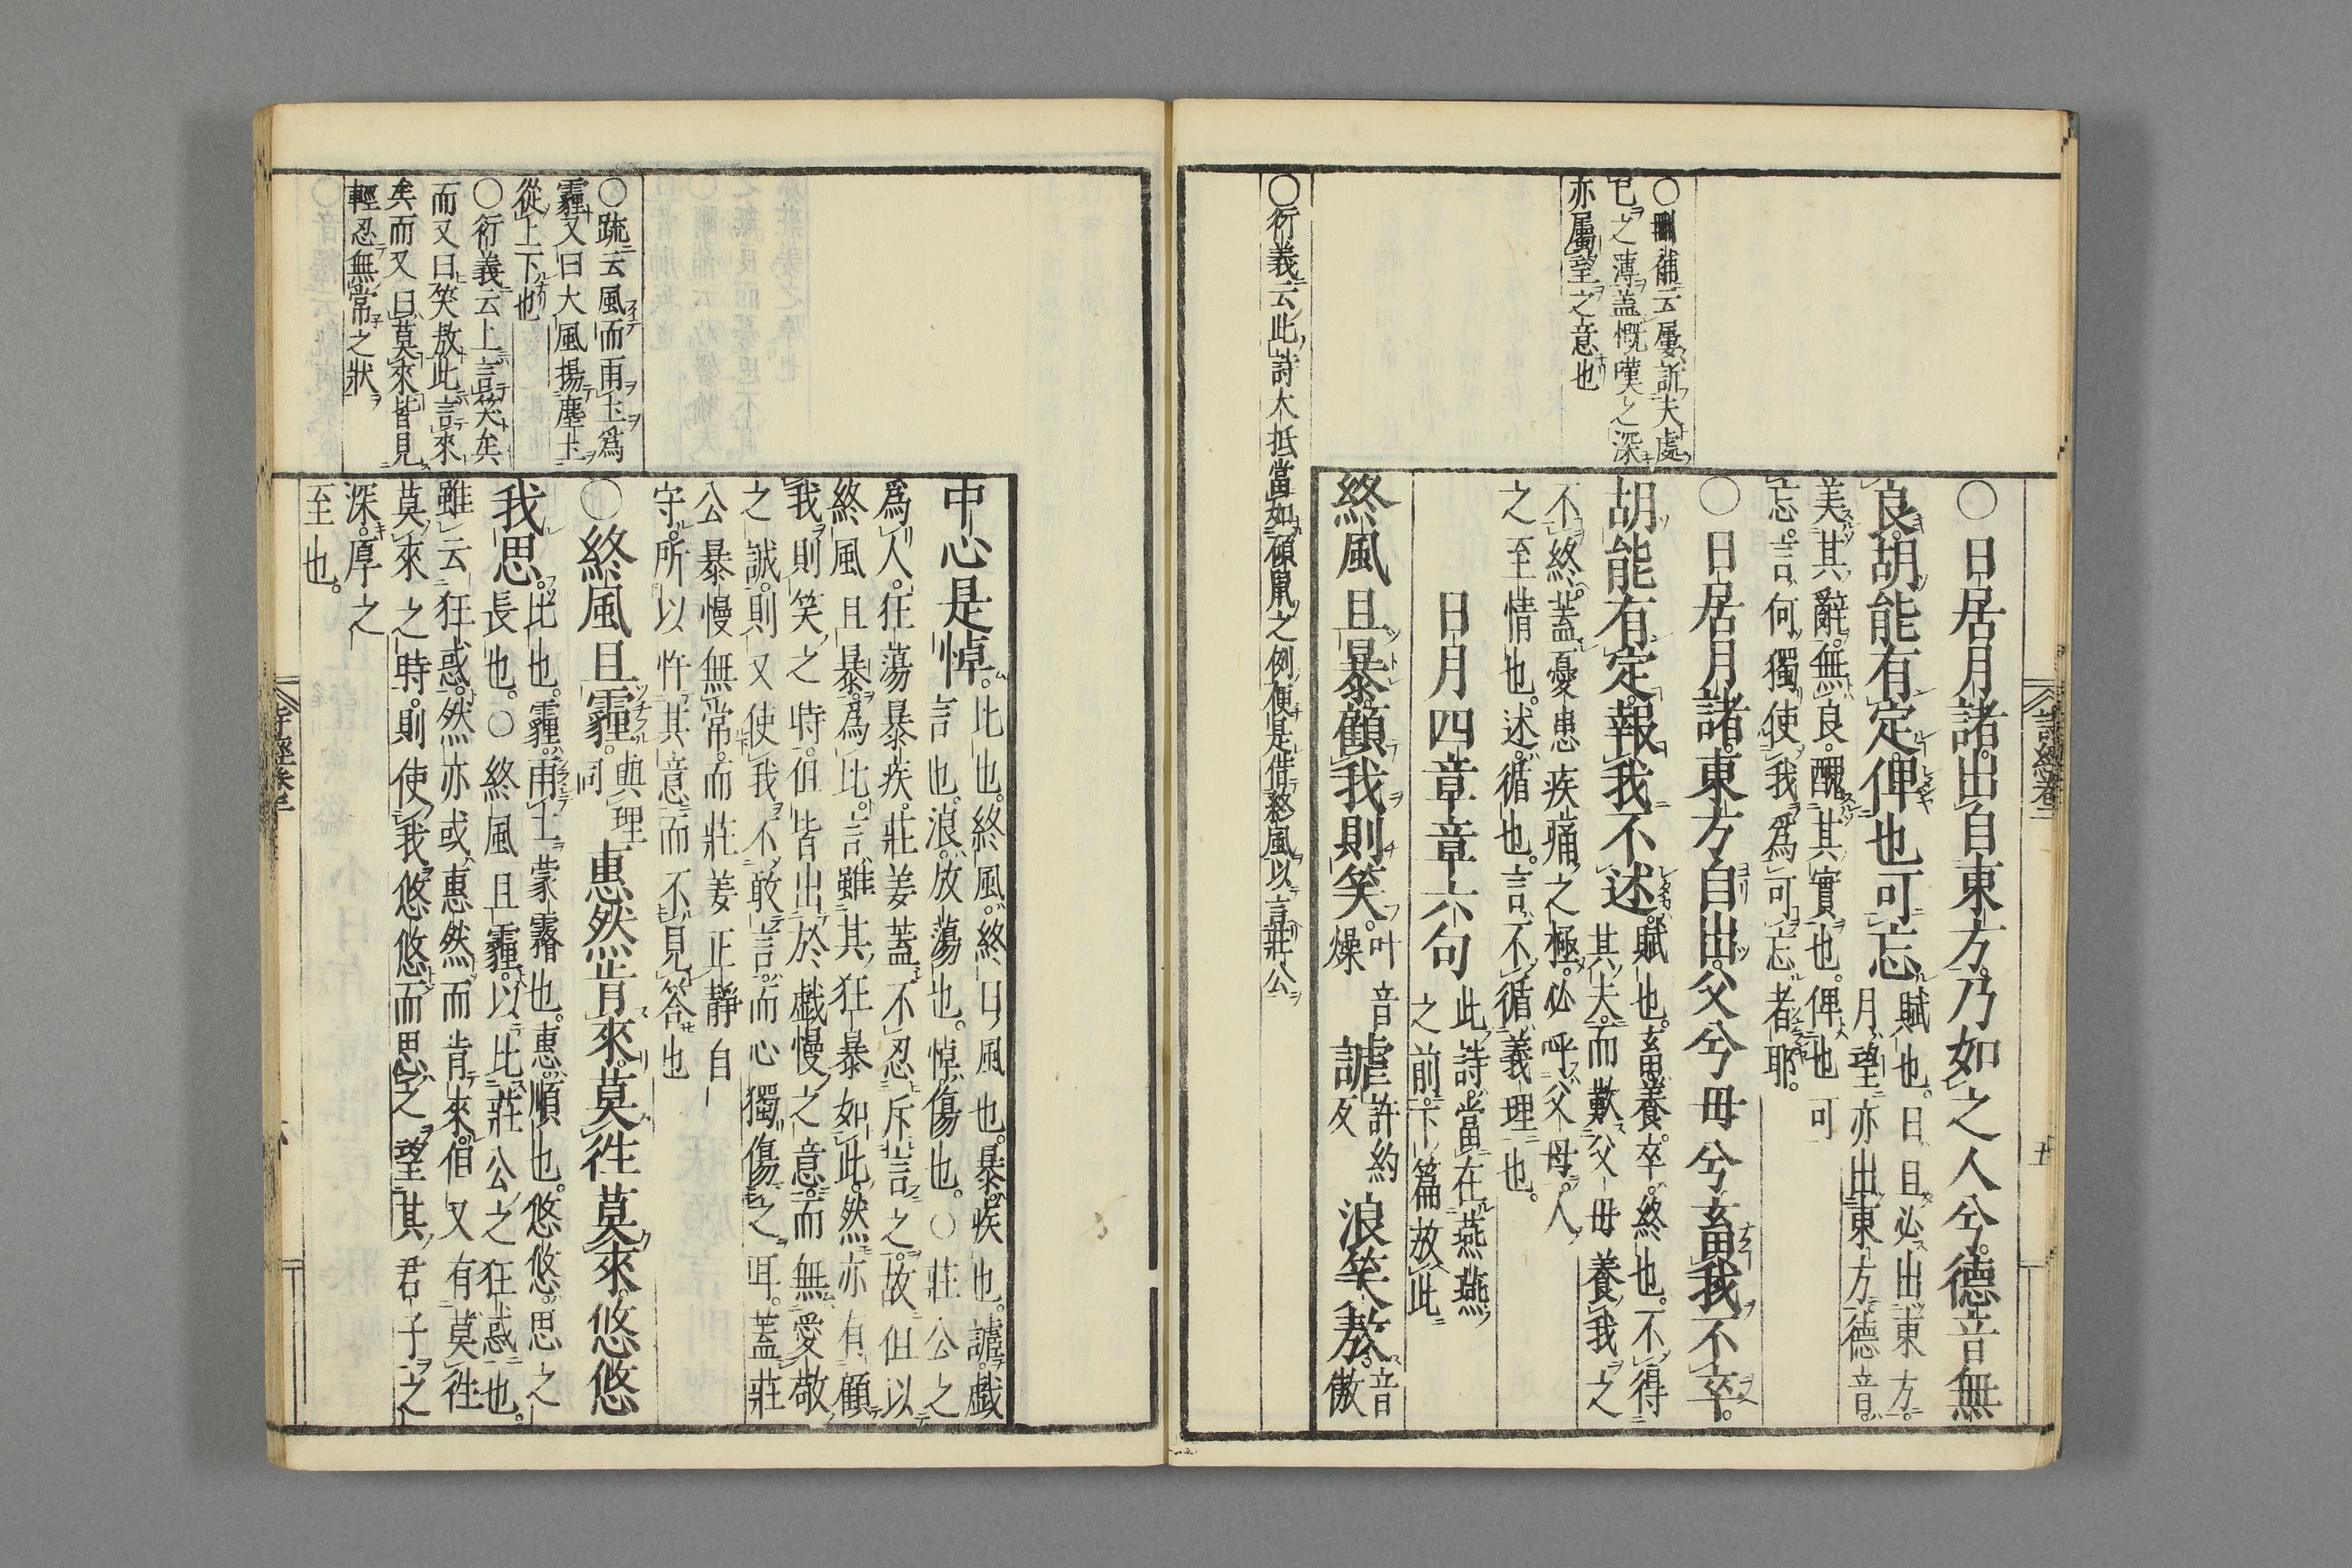 詩經卷二
○日居月諸。出自東方。乃如之人兮。德音無
良。胡能有定。俾也可忘。賦也。日旦必出東方。
月望亦出東方。德音。
美其辭。無良。醜其實也。俾也可
忘。言何獨使我爲可忘者耶。
○日居月諸。東方自出。父兮母兮畜我不卒。
胡能有定。報我不述。賦也。畜養。卒。終也。不得
其夫。而歎父母養我之
不終。蓋憂患疾痛之極。必呼父母。人
之至情也。述。循也。言不循義理也。
日月四章章六句
此詩。當在燕燕
之前。下篇放此
終風且暴。顧我則笑。叶音
燥
謔許約
反
浪笑敖。音
傲
○刪補云屢訴夫處
已之薄蓋慨嘆之深
亦屬望之意也
○衍義云此詩大抵當如碩鼠之例便是借終風以言莊公
中心是悼。比也。終風。終日風也。暴。疾也。謔。戲
言也。浪。放蕩也。悼。傷也。○莊公之
爲人。狂蕩暴疾。莊姜蓋不忍斥言之。故但以
終風且暴。爲比。言雖其狂暴如此。然亦有顧
我則笑之時。但皆出於戲慢之意。而無愛敬
之誠。則又使我不敢言。而心獨傷之耳。蓋莊
公暴慢無常。而莊姜正靜自
守。所以忤其意而不見答也
○終風且霾。與理
同
惠然肯來。莫往莫來。悠悠
我思。比也。霾。雨土蒙霧也。惠。順也。悠悠。思之
長也。○終風且霾。以比莊公之狂惑也。
雖云狂惑。然亦或惠然而肯來。但又有莫往
莫來之時。則使我悠悠而思之。望其君子之
深。厚之
至也。
○疏云風而雨土爲
霾又曰大風揚塵土
從上下也
○衍義云上言笑矣
而又曰笑敖此言來
矣而又曰莫來皆見
輕忍無常之狀